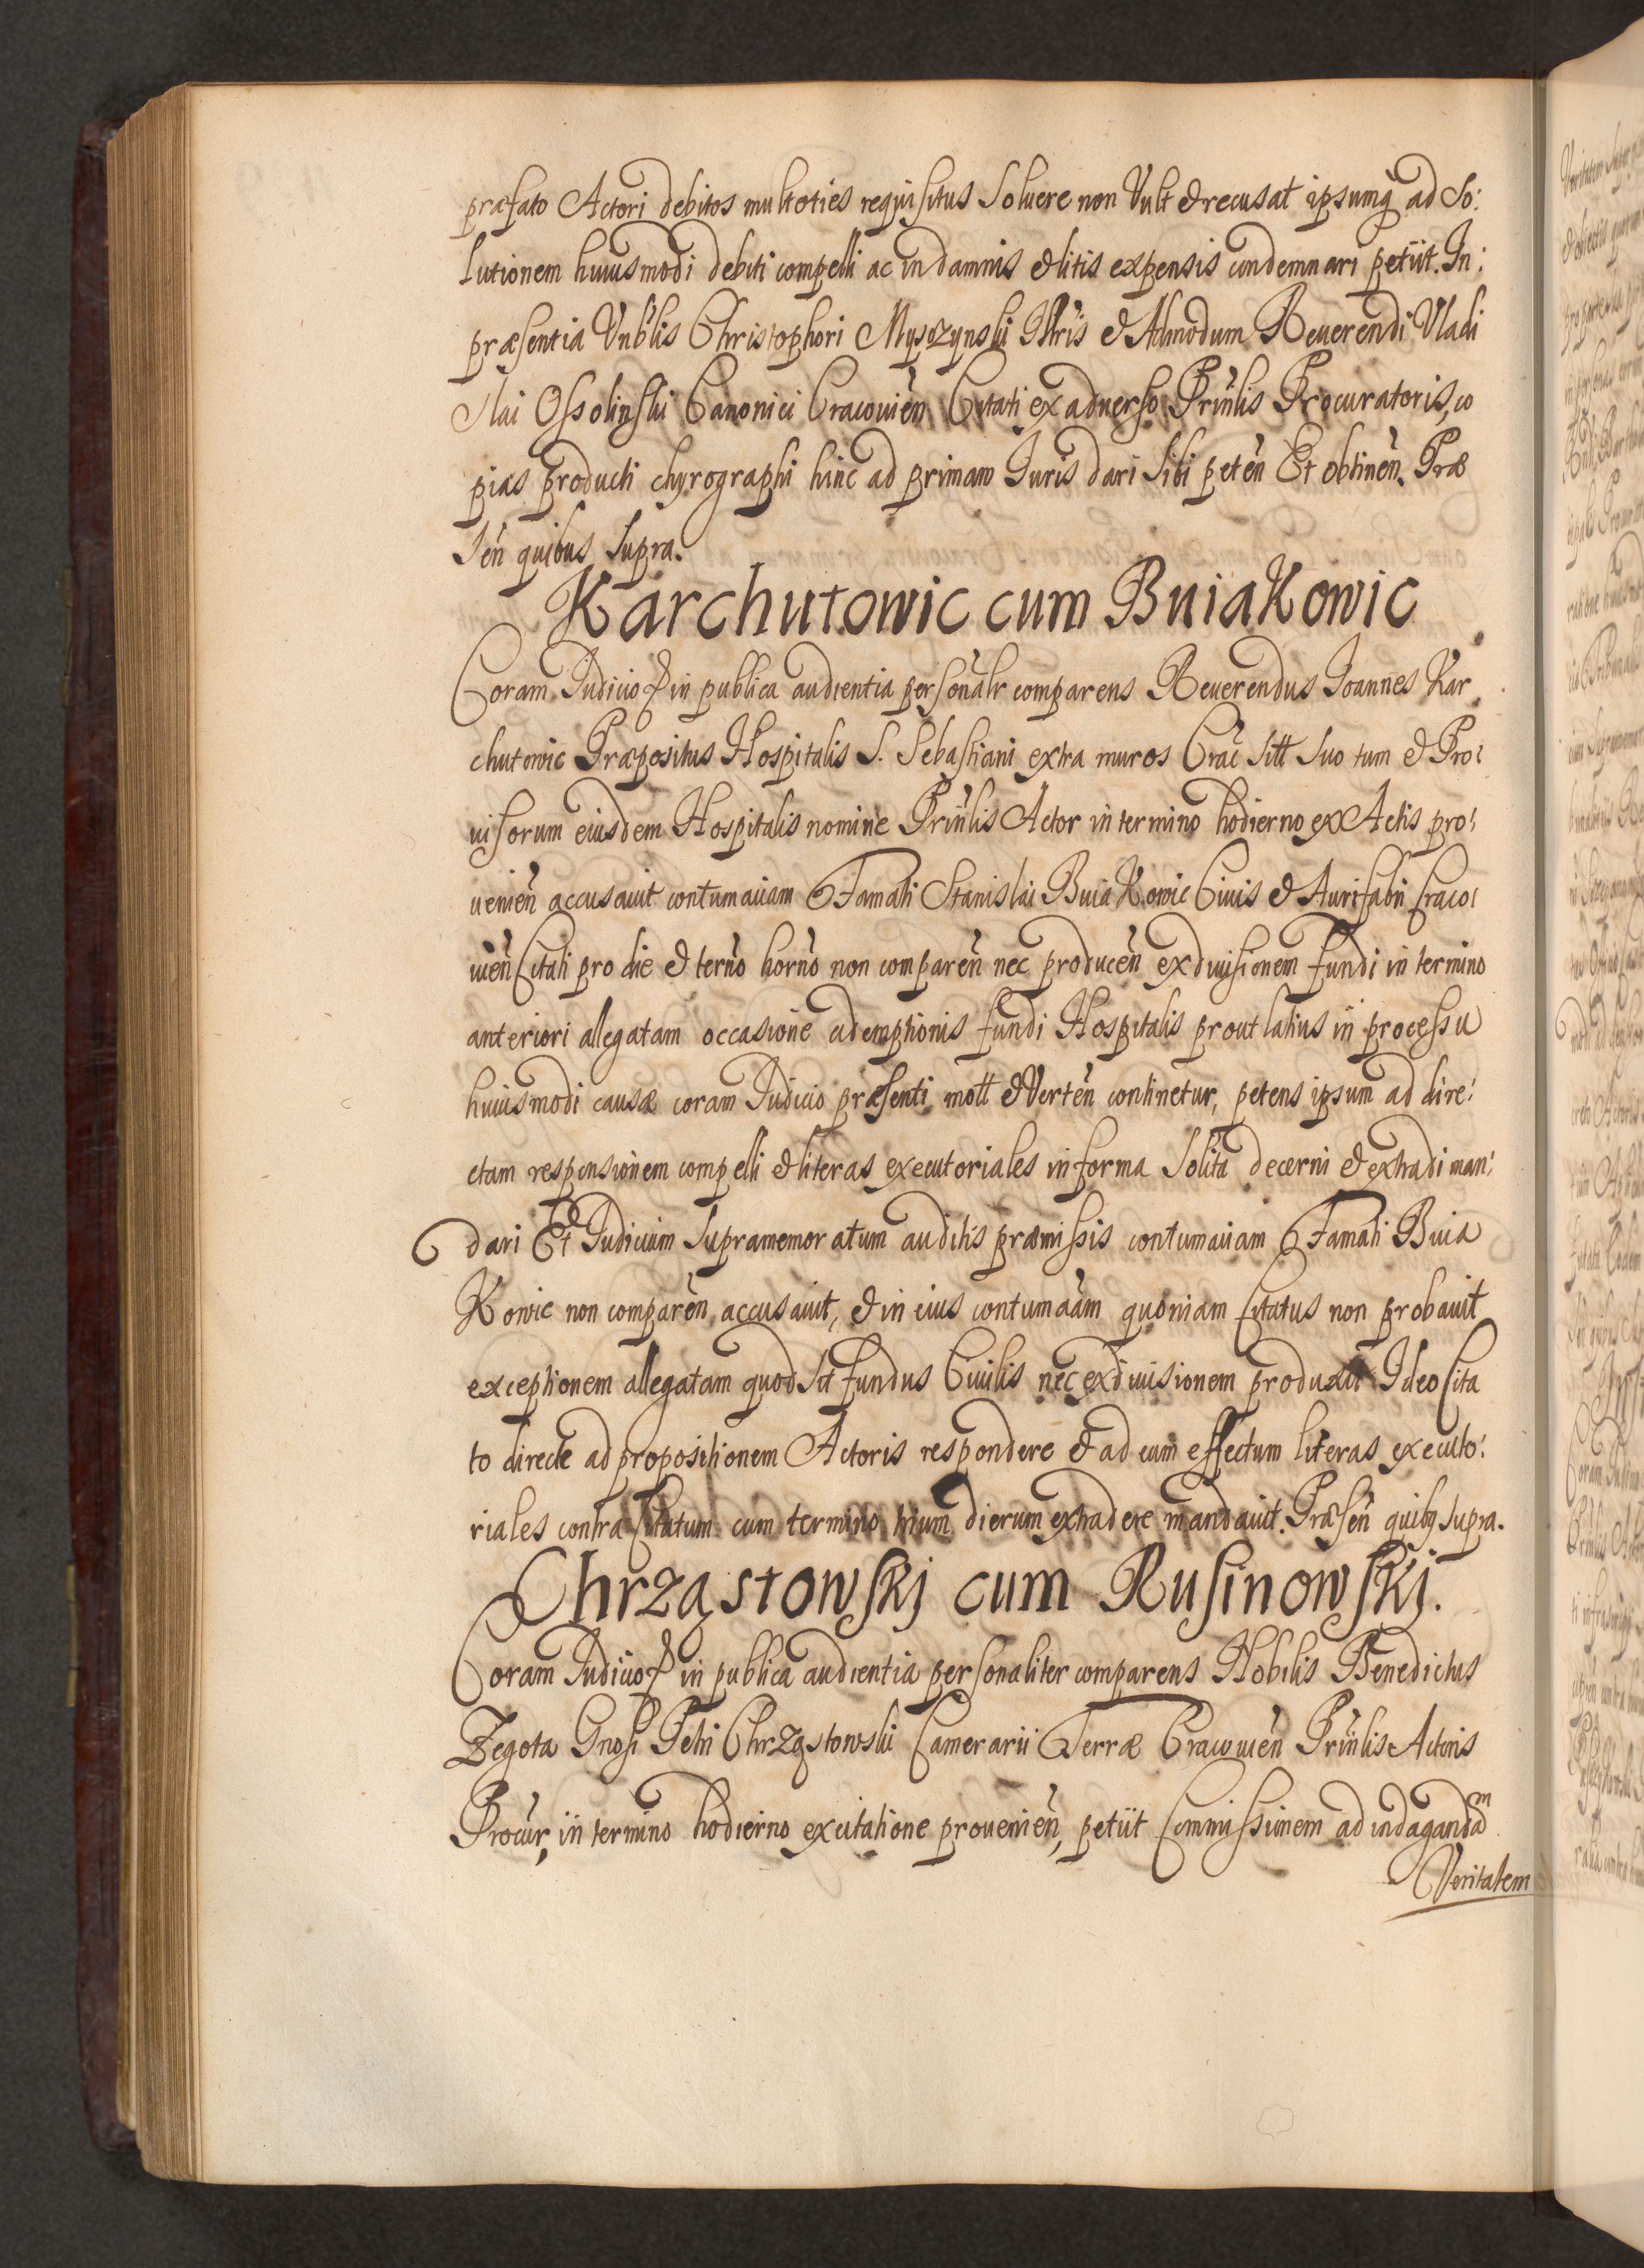 præfato Actori debitos multoties requisitus Soluere non Vult & recusat ipsumq́ ad So:
lutionem huiusmodi debiti compelli ac in damnis & litis expensis condemnari petijt. In:
præsentia Vnblis Christophori Mysczynski Nttris & Admodum Reuerendi Vladi
slai Ossolinski Canonici Cracouień Citati ex aduerso Prinlis Procuratoris, co
pias producti chyrographi hinc ad primam Juris dari sibi petén Et obtinén. Præ
sén quibus supra.
Karchutowic cum BuiaKowic
Coram Judicio & in publica audientia personalr comparens Reuerendus Joannes Kar
chutowic Præpositus Hospitalis S. Sebastiani extra muros Crac sitt suo tum & Pro:
uisorum eiusdem Hospitalis nomine Prinlis Actor in termino hodierno ex Actis pro:
uenién accusauit contumaciam Famati Stanislai BuiaKowic Ciuis & Aurifabri Craco:
uién Citati pro die & terno horno non comparén nec producén exdiuisionem fundi in termino
anteriori allegatam occasione ademptionis fundi Hospitalis prout latius in processu
huiusmodi causæ coram Judicio præsenti mott & Vertén continetur, petens ipsum ad dire:
ctam responsionem compelli & literas executoriales in forma solita decerni & extradi man:
dari Et Judicium supramemoratum auditis præmissis contumaciam Famati Buia
Kowic non comparén accusauit, & in eius contumaciam quoniam Citatus non probauit
exceptionem allegatam quod sit fundus Ciuilis nec exdiuisionem produxit Ideo Cita
to directe ad propositionem Actoris respondere & ad eum effectum literas executo:
riales contra Citatum cum termino trium dierum extradere mandauit. Præsén quibꝫ supra.
Chrząstowskj cum Rusinowskj.
Coram Judicio & in publica audientia personaliter comparens Nobilis Benedictus
Zegota Gnosi Petri Chrząstowski Camerarii Terræ Cracouién Prinlis Actoris
Procur, in termino hodierno ex citatione prouenién, petijt Commissionem ad indagandam
Veritatem